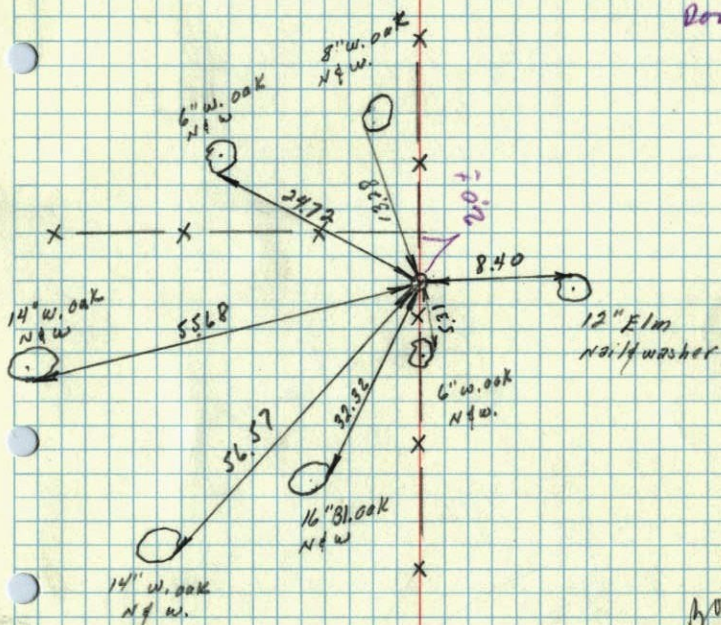 8" w. oak
N & W.
6" w. oak
N & W
24.72
13.28
8.40
12" Elm
Nail & washer
14" w. oak
N & W
55.68
5.31
6" w. oak
N & W.
56.57
32.32
16" Bl. oak
N & W
14" w. oak
N & W.